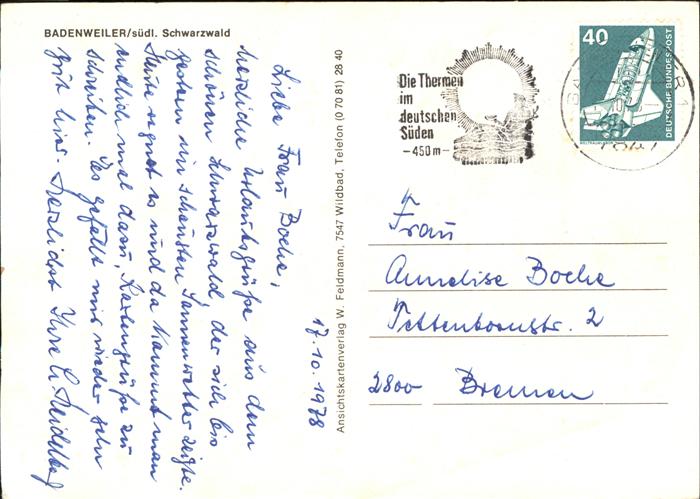 BADENWEILER/südl. Schwarzwald
17.10.1978
Liebe Frau Boche,
herzliche Urlaubsgrüße aus dem
schönen Schwarzwald, der sich bis
gestern im schönsten Sonnenwetter zeigte.
Heute regnet es und da kommt man
endlich mal dazu, Kartengrüße zu
schreiben. Es gefällt mir wieder sehr
gut hier. Herzlichst Ihre
Ansichtskartenverlag W. Feldmann, 7547 Wildbad, Telefon (0 70 81) 28 40
Die Thermen
im
deutschen
Süden
-450m-
40
DEUTSCHE BUNDESPOST
Frau
Annelise Boche
Tettenbornstr. 2
2800 Bremen